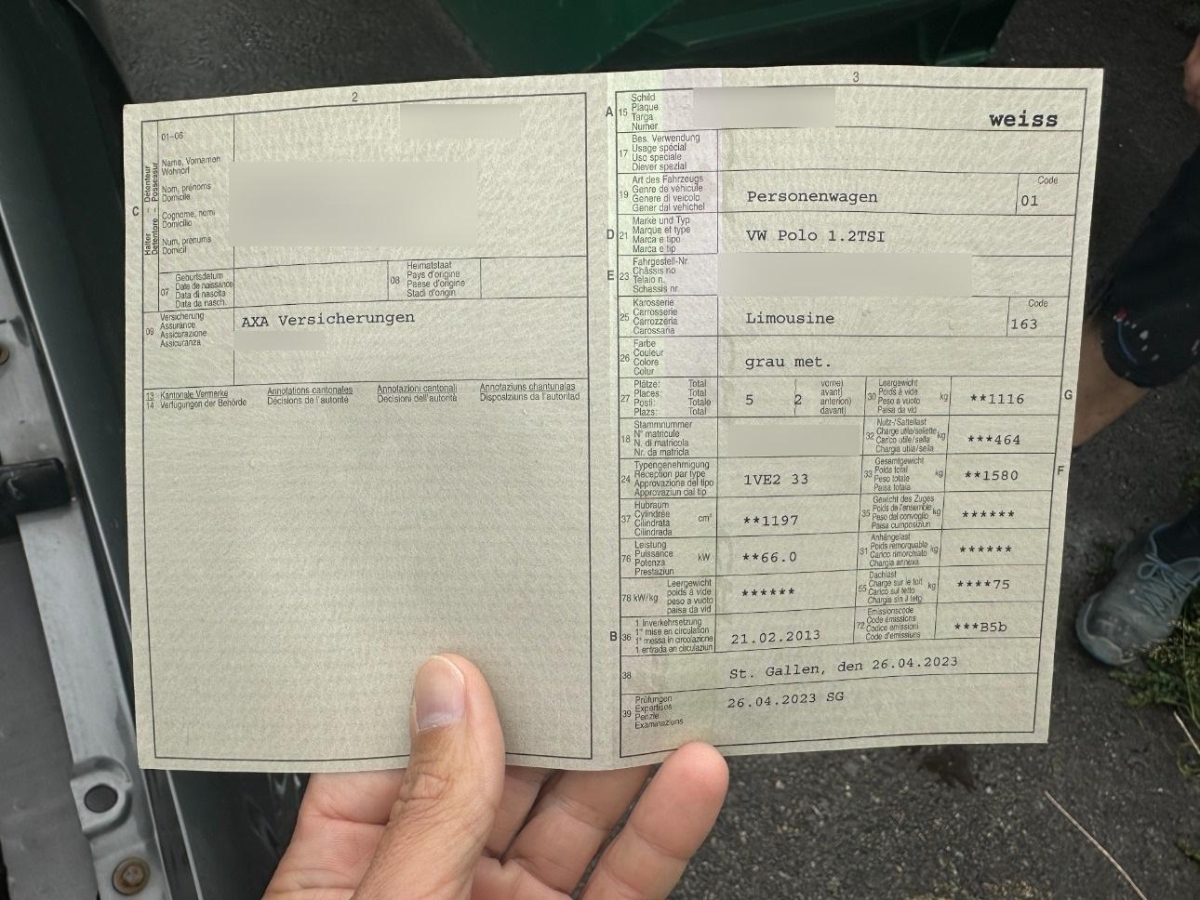 2
01-06
Halter Detentore
Détenteur Possessur
C
Name, Vornamen
Wohnort
Nom, prénoms
Domicile
Cognome, nomi
Domicilio
Num, prenums
Domicil
07
Geburtsdatum
Date de naissance
Data di nascita
Data da nasch.
08
Heimatstaat
Pays d'origine
Paese d'origine
Stadi d'origin
09
Versicherung
Assurance
Assicurazione
Assicuranza
AXA Versicherungen
13
14
Kantonale Vermerke
Verfügungen der Behörde
Annotations cantonales
Décisions de l'autorité
Annotazioni cantonali
Decisioni dell'autorità
Annotaziuns chantunalas
Disposiziuns da l'autoritad
3
A 15
Schild
Plaque
Targa
Numer
weiss
17
Bes. Verwendung
Usage spécial
Uso speciale
Diever spezial
19
Art des Fahrzeugs
Genre de véhicule
Genere di veicolo
Gener dal vehichel
Personenwagen
Code
01
D 21
Marke und Typ
Marque et type
Marca e tipo
Marca e tip
VW Polo 1.2TSI
E 23
Fahrgestell-Nr.
Châssis no
Telaio n.
Schassis nr.
25
Karosserie
Carrosserie
Carrozzeria
Carossaria
Limousine
Code
163
26
Farbe
Couleur
Colore
Colur
grau met.
27
Plätze: Total
Places: Total
Posti: Totale
Plazs: Total
5
2
vorne)
avant)
anteriori)
davant)
30
Leergewicht
Poids à vide
Peso a vuoto
Paisa da vid
kg
**1116
G
18
Stammnummer
N° matricule
N. di matricola
Nr. da matricla
32
Nutz-/Sattellast
Charge utile/sellette
Carico utile/sella
Chargia utila/sella
kg
***464
24
Typengenehmigung
Réception par type
Approvazione del tipo
Approvaziun dal tip
1VE2 33
33
Gesamtgewicht
Poids total
Peso totale
Paisa totala
kg
**1580
F
37
Hubraum
Cylindrée
Cilindrata
Cilindrada
cm³
**1197
35
Gewicht des Zuges
Poids de l'ensemble
Peso del convoglio
Paisa cumposiziun
kg
******
76
Leistung
Puissance
Potenza
Prestaziun
kW
**66.0
31
Anhängelast
Poids remorquable
Carico rimorchiato
Chargia annexa
kg
******
78 kW/kg
Leergewicht
poids à vide
peso a vuoto
paisa da vid
******
55
Dachlast
Charge sur le toit
Carico sul tetto
Chargia sin il tetg
kg
****75
B 36
1. Inverkehrsetzung
1re mise en circulation
1a messa in circolazione
1. entrada en circulaziun
21.02.2013
72
Emissionscode
Code émissions
Codice emissioni
Code d'emissiuns
***B5b
38
St. Gallen, den 26.04.2023
39
Prüfungen
Expertises
Perizie
Examinaziuns
26.04.2023 SG